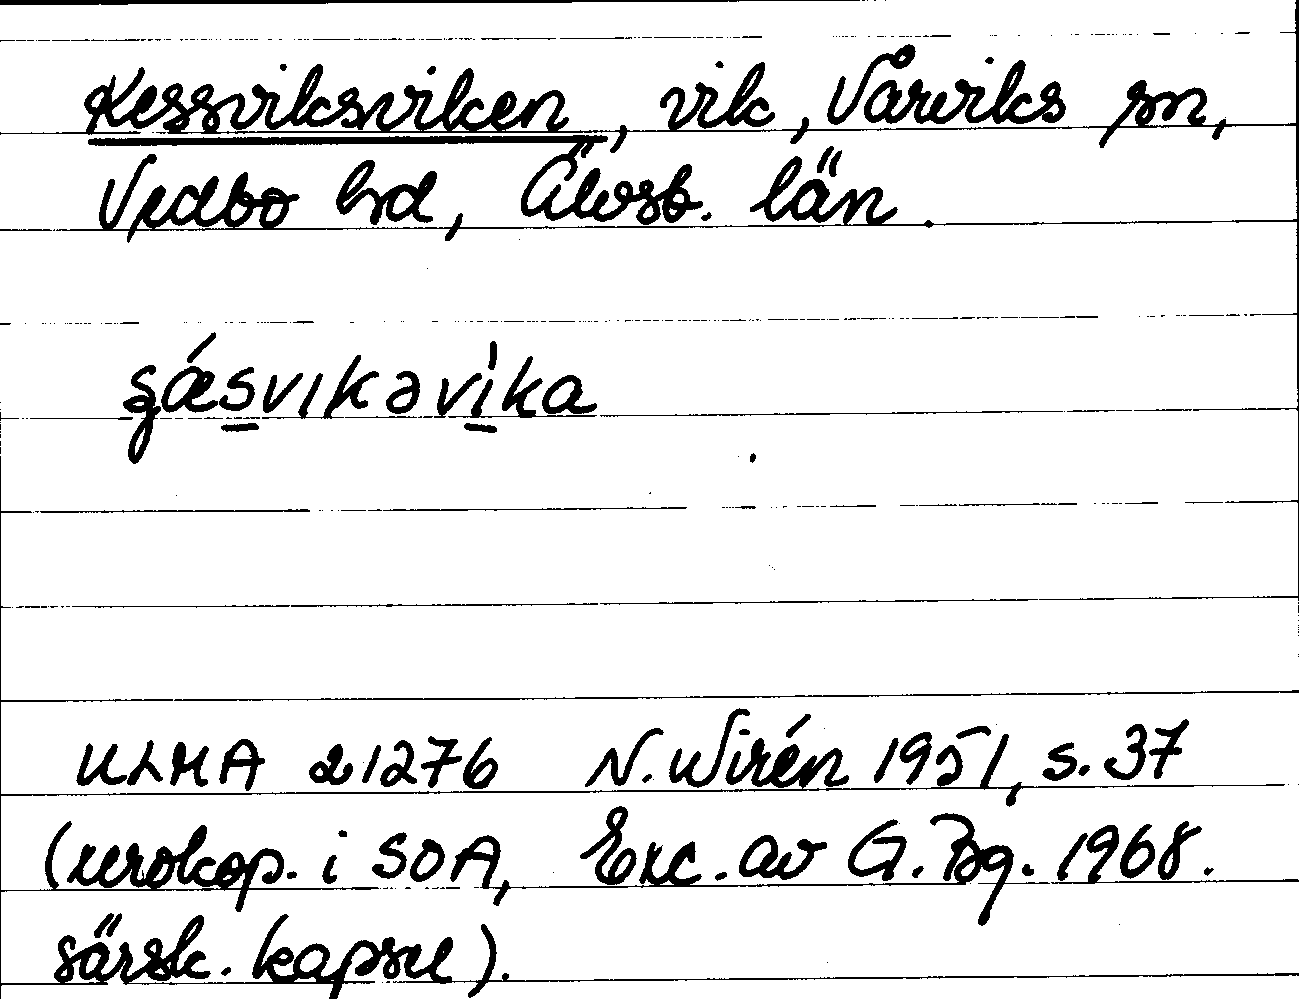 Kessviksviken, vik, Vårviks sn,
Vedbo hd, Älvsb. län.
ʂǽsvıkəvìka
ULMA 21276 N. Wirén 1951, s. 37
(xerokop. i SOA, Exc. av G. Bg. 1968.
särsk. kapsel).